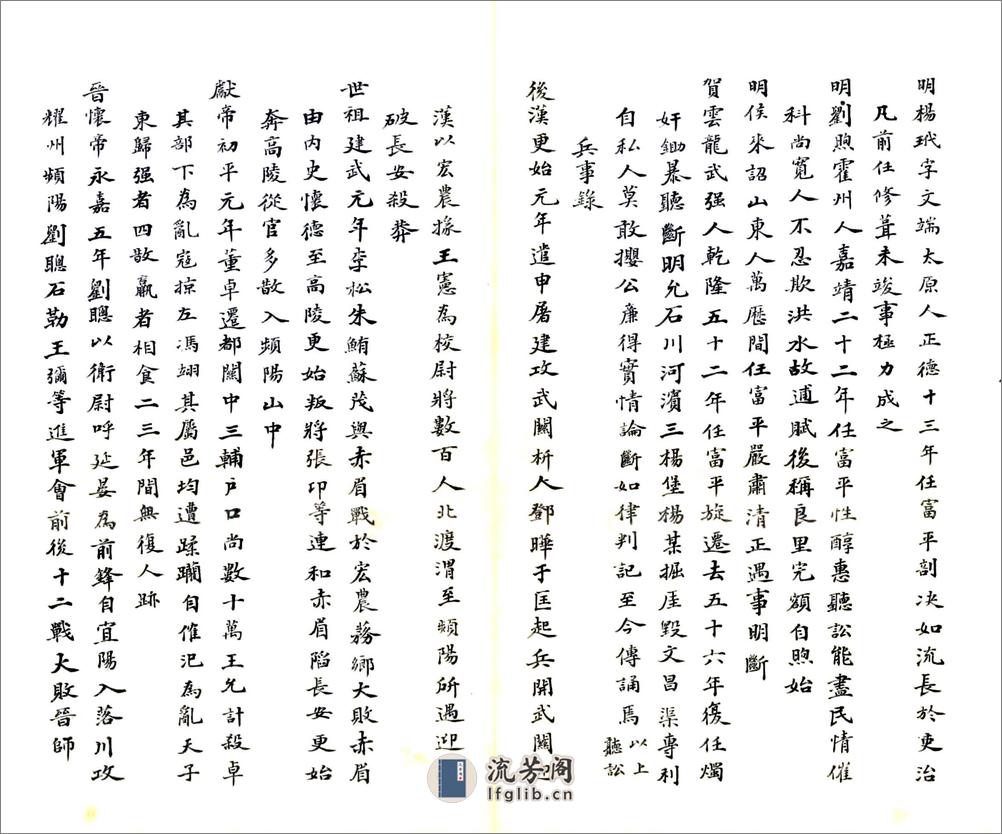 明楊玳字文端太原人正德十三年任富平剖决如流長於吏治
凡前任修葺未竣事極力成之
明劉煦霍州人嘉靖二十二年任富平性醇惠聽訟能盡民情催
科尚寬人不忍欺洪水故逋賦後稱良里完額自煦始
明侯來詔山東人萬曆間任富平嚴肅清正遇事明斷
賀雲龍武强人乾隆五十二年任富平旋遷去五十六年復任燭
奸鋤暴聽斷明允石川河濱三楊堡楊某掘厓毀文昌渠專利
自私人莫敢攖公廉得實情論斷如律判記至今傳誦焉 以上聽訟
兵事錄
後漢更始元年遣申屠建攻武關析人鄧曄于匡起兵開武關迎
漢以宏農掾王憲為校尉將數百人北渡渭至頻陽所過迎
破長安殺莽
世祖建武元年李松朱鮪蘇茂與赤眉戰於宏農蓩鄉大敗赤眉
由內史懷德至高陵更始叛將張卬等連和赤眉陷長安更始
奔高陵從官多散入頻陽山中
獻帝初平元年董卓遷都關中三輔戶口尚數十萬王允計殺卓
其部下為亂寇掠左馮翊其屬邑均遭蹂躪自傕汜為亂天子
東歸强者四散羸者相食二三年間無復人跡
晉懷帝永嘉五年劉聰以衛尉呼延晏為前鋒自宜陽入落川攻
耀州頻陽劉聰石勒王彌等進軍會前後十二戰大敗晉師
流芳阁
lfglib.cn